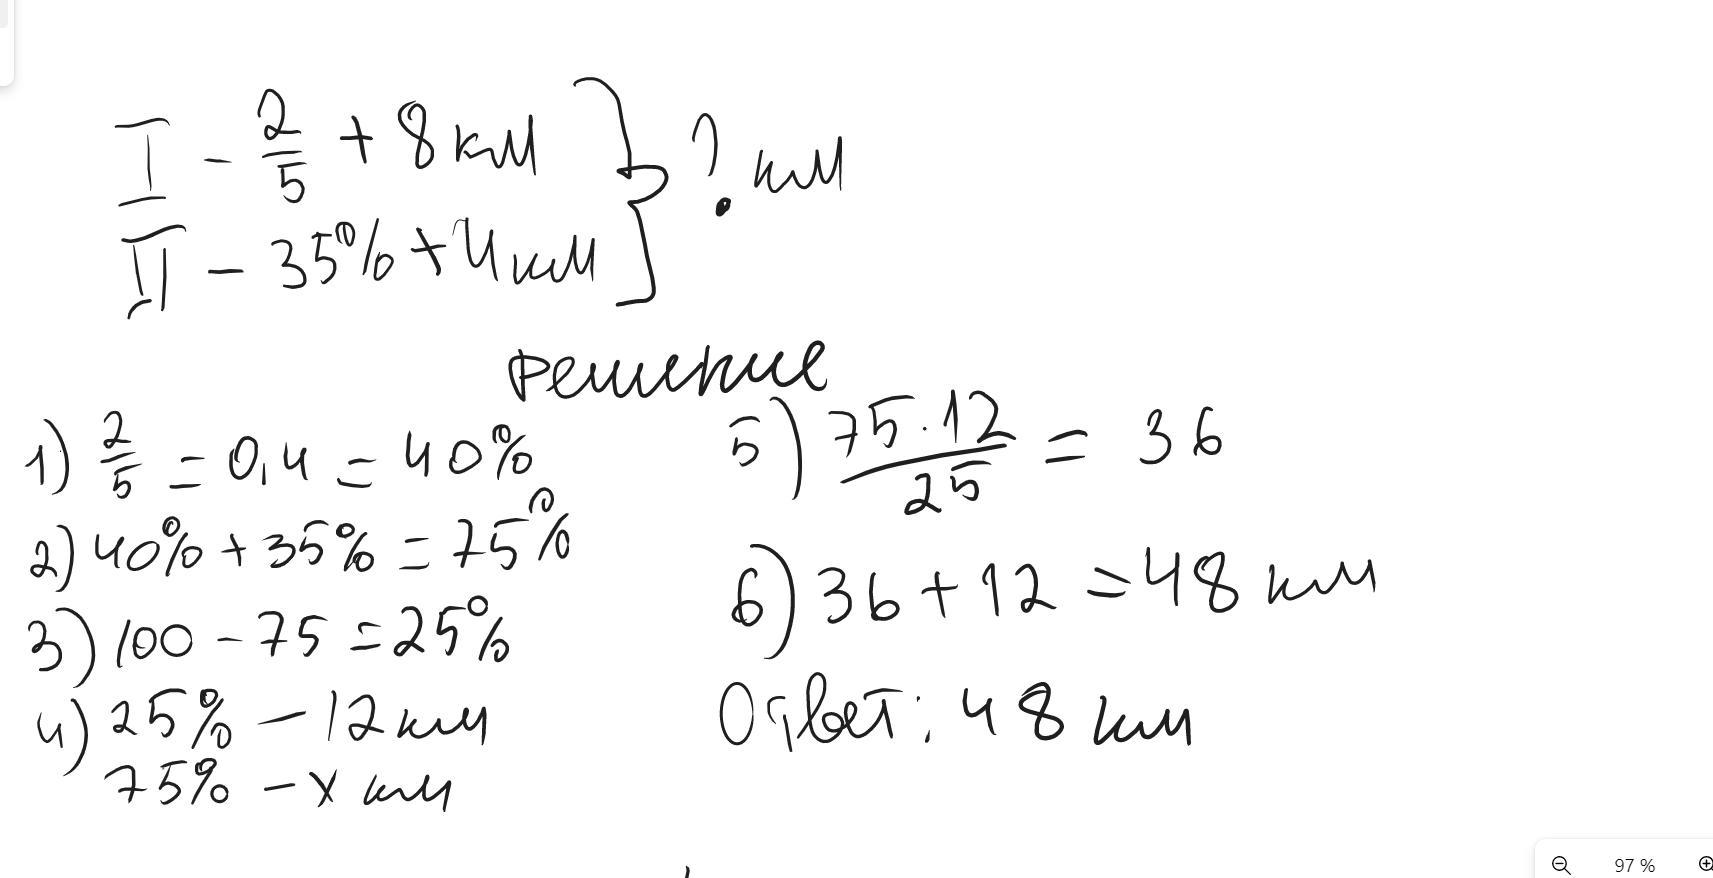 I - 2/5 + 8 км } ? км
II - 35% + 4 км
решение
1) 2/5 = 0,4 = 40%
2) 40% + 35% = 75%
3) 100 - 75 = 25%
4) 25% - 12 км
75% - x км
5) 75 · 12 / 25 = 36
6) 36 + 12 = 48 км
Ответ: 48 км
97 %